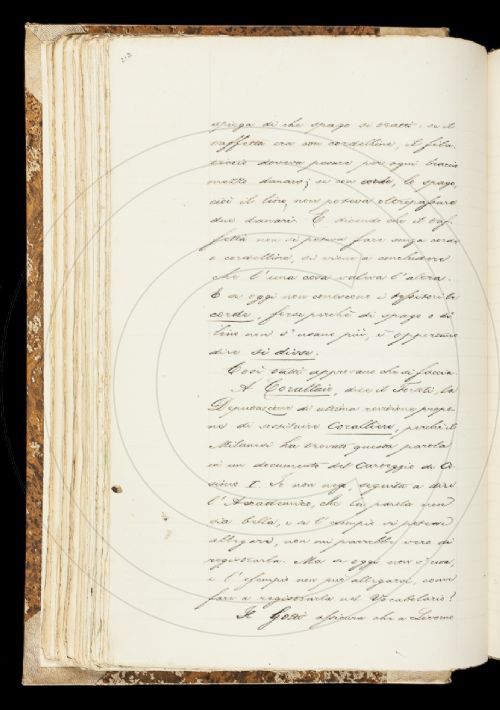 spiega di che spago si tratti: se il
taffettà era con cordelline, il fila-
doveva pesare per ogni braccio
mezzo danaro; se con corde, lo spago,
cioè il lino, non poteva oltrepassare
due danari. E dicendo che il taf-
fettà non si poteva fare senza corde
o cordelline, si viene a conchiudere
che l'una cosa valeva l'altra.
E se oggi non conoscono i
corde, forse perchè di spago o di
lino non s'usano più, è opportuno
dire si disse.
Così tutti approvano che si faccia.
A Corallaio, dice il la
Deputazione di ultima revisione propo-
ne di sostituire Coralliere, perchè il
Milanesi ha trovato questa parola
in un documento del Carteggio di Co-
simo I. Io non nego, seguita a dire
l'Accademico, che la parola non
sia bella, e se l'esempio si potesse
allegare, non mi parrebbe vero di
registrarla. Ma se oggi non s'usa,
e l'esempio non può allegarsi, come
fare a registrarla nel Vocabolario?
Il Gotti assicura che a Livorno